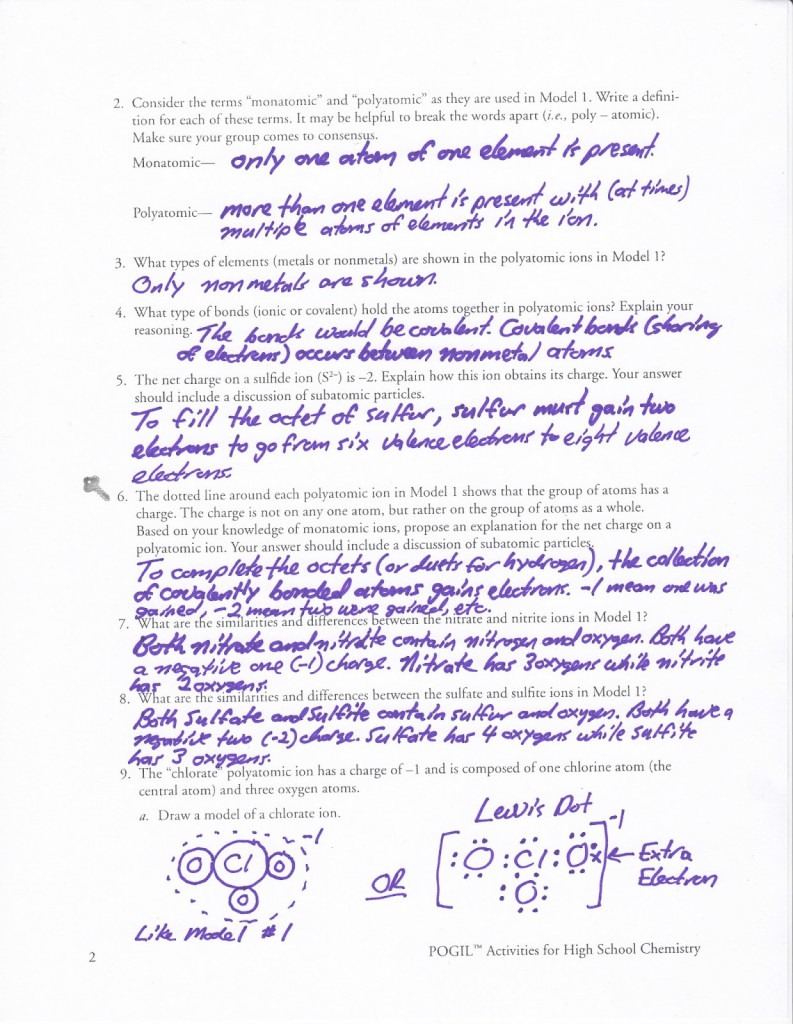 2. Consider the terms “monatomic” and “polyatomic” as they are used in Model 1. Write a defini-
tion for each of these terms. It may be helpful to break the words apart (i.e., poly – atomic).
Make sure your group comes to consensus.
Monatomic— only one atom of one element is present.
Polyatomic— more than one element is present with (at times)
multiple atoms of elements in the ion.
3. What types of elements (metals or nonmetals) are shown in the polyatomic ions in Model 1?
Only nonmetals are shown.
4. What type of bonds (ionic or covalent) hold the atoms together in polyatomic ions? Explain your
reasoning. The bonds would be covalent. Covalent bonds (sharing
of electrons) occurs between nonmetal atoms
5. The net charge on a sulfide ion (S²⁻) is –2. Explain how this ion obtains its charge. Your answer
should include a discussion of subatomic particles.
To fill the octet of sulfur, sulfur must gain two
electrons to go from six valence electrons to eight valence
electrons.
6. The dotted line around each polyatomic ion in Model 1 shows that the group of atoms has a
charge. The charge is not on any one atom, but rather on the group of atoms as a whole.
Based on your knowledge of monatomic ions, propose an explanation for the net charge on a
polyatomic ion. Your answer should include a discussion of subatomic particles.
To complete the octets (or duets for hydrogen), the collection
of covalently bonded atoms gains electrons. -1 mean one was
gained, -2 mean two were gained, etc.
7. What are the similarities and differences between the nitrate and nitrite ions in Model 1?
Both nitrate and nitrite contain nitrogen and oxygen. Both have
a negative one (-1) charge. Nitrate has 3 oxygens while nitrite
has 2 oxygens.
8. What are the similarities and differences between the sulfate and sulfite ions in Model 1?
Both Sulfate and Sulfite contain sulfur and oxygen. Both have a
negative two (-2) charge. Sulfate has 4 oxygens while sulfite
has 3 oxygens.
9. The “chlorate” polyatomic ion has a charge of –1 and is composed of one chlorine atom (the
central atom) and three oxygen atoms.
a. Draw a model of a chlorate ion.
-1
O Cl O
O
Like Model #1
OR
Lewis Dot
-1
[:O:Cl:Ox]
:O:
← Extra
Electron
2
POGIL™ Activities for High School Chemistry